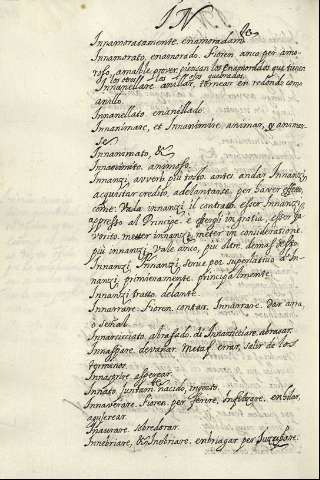 IN
Innamoratamente. enamoradamte
Innamorato, enamorado. Fioren. anca per amo-
roso, amable, por ver, piensan los Enamorados que tienen
los otros los ojos quebrados.
Innanellare. anillar, tornear en redondo como
anillo.
Innanellato. enanellado.
Innanimare, et Innanimire, animar, y animar
se
Innanimato, &
Innanimito. animoso.
Innanzi, avverb. più tosto. antes. andar Innanzi,
acquistar credito, adelantarse, per haver effetto,
come. Vada innanzi il contrato. esser Innanzi
appresso al Principe. è essergli in gratia, esser fa-
vorito. metter innanzi. meter in consideratione.
più innanzi. Vale anco, più oltre, demas desto.
Innanzi Innanzi. serve per superlativo d'In-
nanzi, primieramente. principalmente.
Innanzi tratto. delante.
Innarrare. Fioren. contar. Innarrare. Dar arra,
o señal.
Innarsicciato. abrasado. di Innarsicciare. abrasar.
Innaspare. devanar. Metaf. errar, salir de los
terminos.
Innasprire. asperear.
Innato. juntamte nacido, ingenito.
Innaverare. Fioren. per ferire,
agujerear.
Innaurare. sobredorar.
Innebriare, & Inebriare. enbriagar per